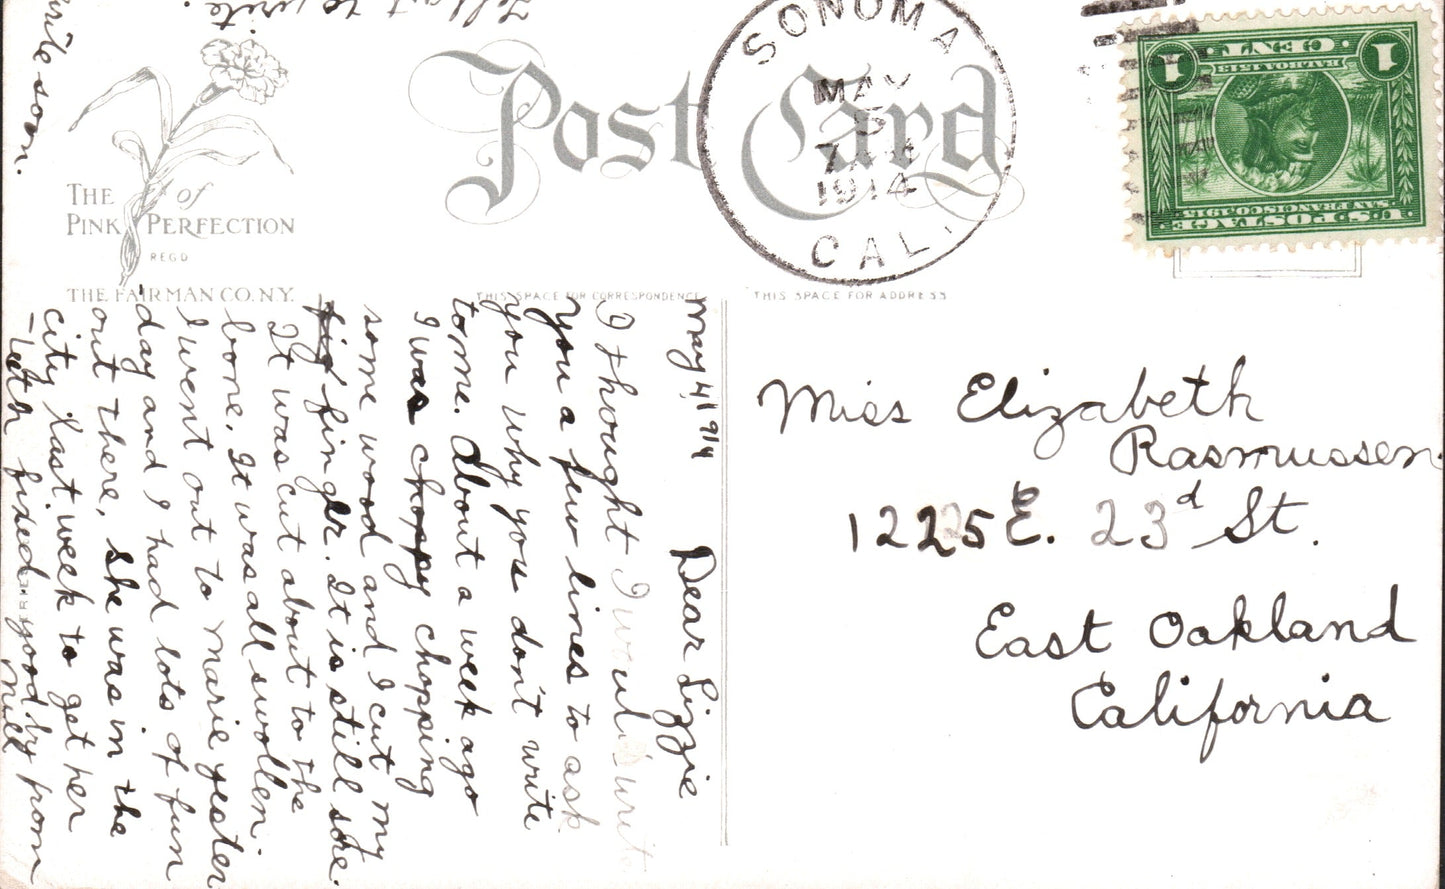 Post Card
THE PINK of PERFECTION
REGD
THE FAIRMAN CO. N.Y.
THIS SPACE FOR CORRESPONDENCE
THIS SPACE FOR ADDRESS
SONOMA
MAY
5
7
1914
CAL.
U.S. POSTAGE
SAN FRANCISCO 1915
BALBOA 1513
1 CENT 1
Miss Elizabeth
Rasmussen
1225 E. 23d St.
East Oakland
California
May 4, 1914
Dear Lizzie
I thought I would write
you a few lines to ask
you why you don't write
to me. About a week ago
I was choppy chopping
some wood and I cut my
fig finger. It is still sore.
It was cut about to the
bone. It was all swollen.
I went out to Marie yester
-day and I had lots of fun
out there, she was in the
city last week to get her
fixed good by from
Nell
write soon.
to write.